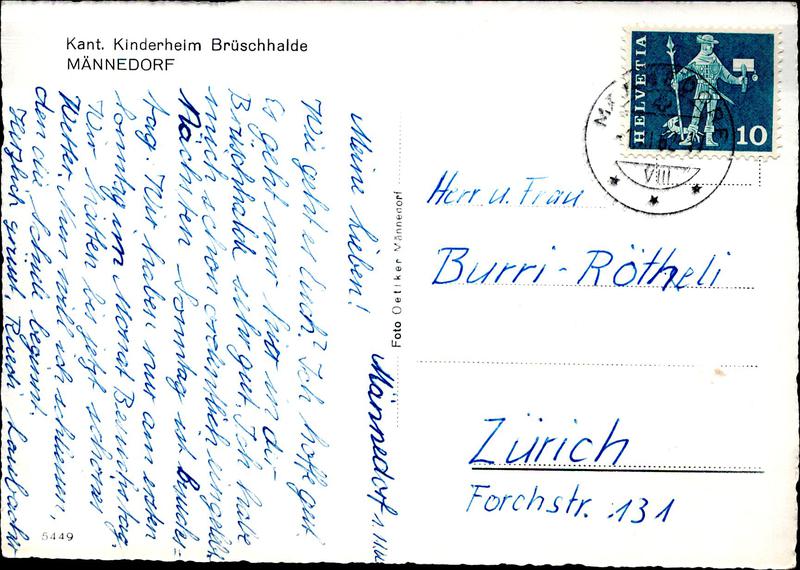 Kant. Kinderheim Brüschhalde
MÄNNEDORF
Männedorf
Meine Lieben!
Wie geht es Euch? Ich hoffe gut
Es geht mir hier in der
Brüschhalde sehr gut. Ich habe
mich schon ordentlich eingelebt
Nächsten Sonntag ist Besuchs-
tag. Wir haben nur am ersten
Sonntag im Monat Besuchstag.
Wir hatten bis jetzt schönes
Wetter. Nun will ich schliessen,
den die Schule beginnt.
Herzlich grüsst, Ruedi
5449
Foto Oetiker Männedorf
HELVETIA
10
VIII
Herr u. Frau
Burri-Rötheli
Zürich
Forchstr. 131